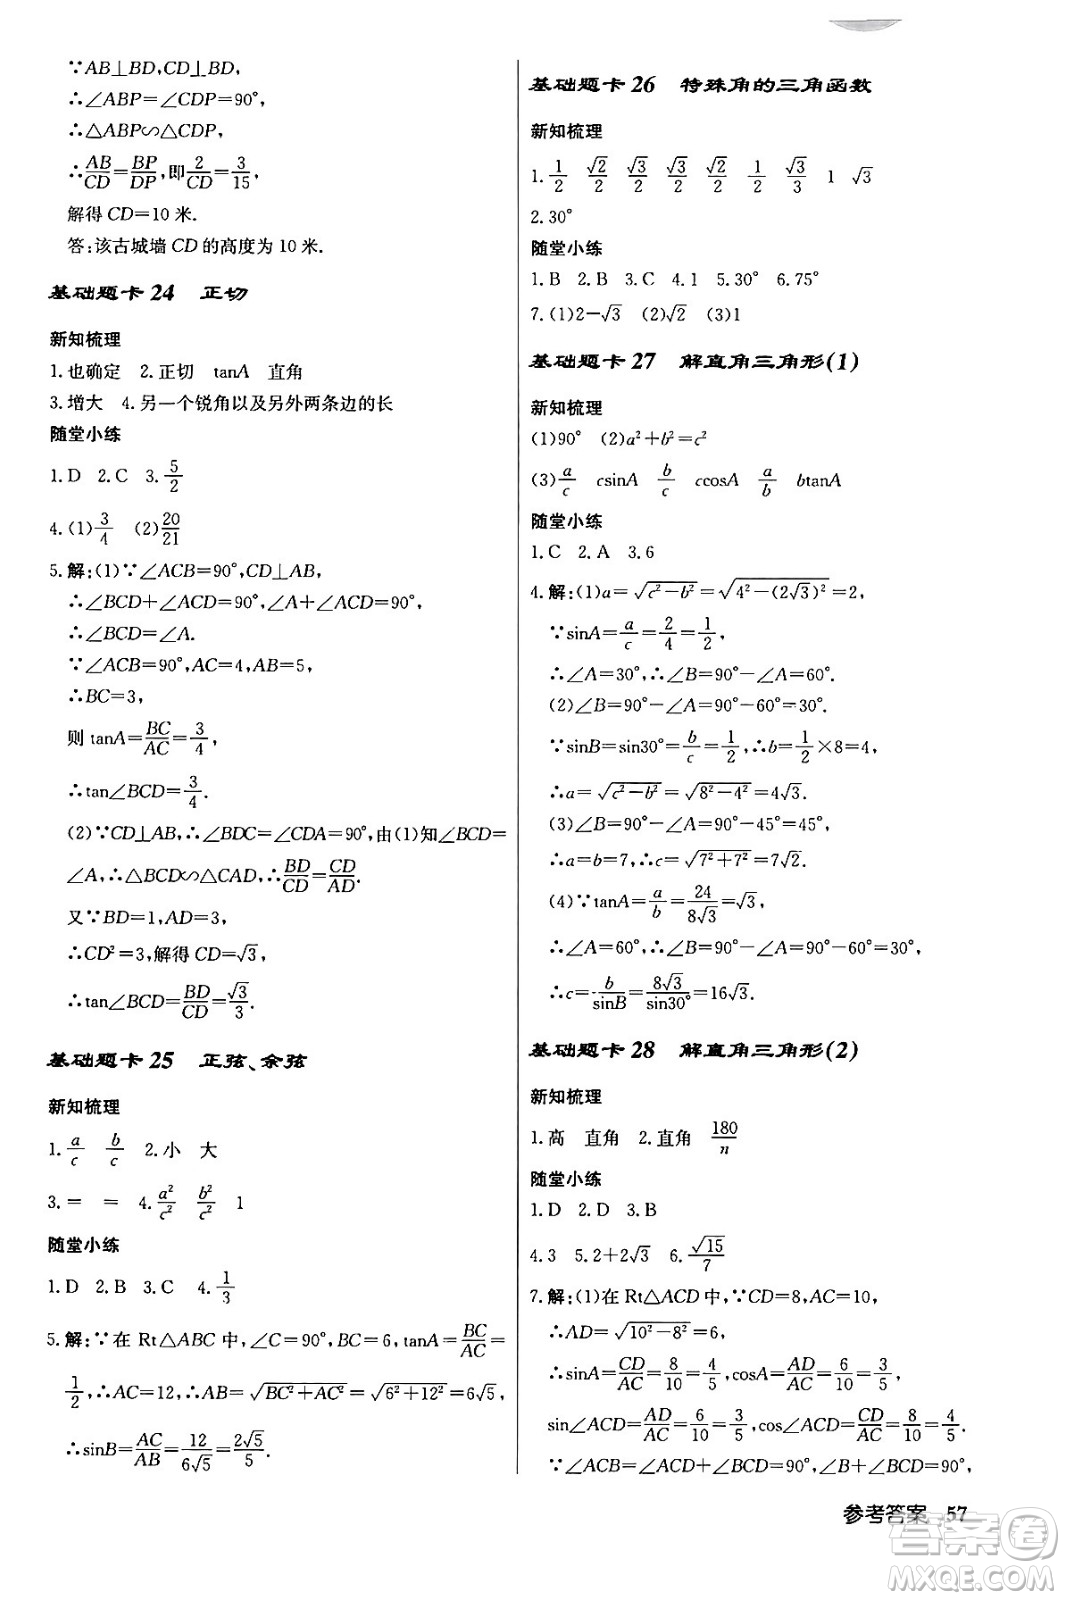 ∵AB⊥BD,CD⊥BD,
∴∠ABP=∠CDP=90°,
∴△ABP∽△CDP,
∴AB/CD=BP/DP,即2/CD=3/15,
解得CD=10米.
答:该古城墙CD的高度为10米.
基础题卡24 正切
新知梳理
1.也确定 2.正切 tanA 直角
3.增大 4.另一个锐角以及另外两条边的长
随堂小练
1.D 2.C 3.5/2
4.(1)3/4 (2)20/21
5.解:(1)∵∠ACB=90°,CD⊥AB,
∴∠BCD+∠ACD=90°,∠A+∠ACD=90°,
∴∠BCD=∠A.
∵∠ACB=90°,AC=4,AB=5,
∴BC=3,
则tanA=BC/AC=3/4,
∴tan∠BCD=3/4.
(2)∵CD⊥AB,∴∠BDC=∠CDA=90°,由(1)知∠BCD=
∠A,∴△BCD∽△CAD,∴BD/CD=CD/AD.
又∵BD=1,AD=3,
∴CD²=3,解得CD=√3,
∴tan∠BCD=BD/CD=√3/3.
基础题卡25 正弦、余弦
新知梳理
1.a/c b/c 2.小 大
3.= = 4.a²/c² b²/c² 1
随堂小练
1.D 2.B 3.C 4.1/3
5.解:∵在Rt△ABC中,∠C=90°,BC=6,tanA=BC/AC=
1/2,∴AC=12,∴AB=√(BC²+AC²)=√(6²+12²)=6√5,
∴sinB=AC/AB=12/6√5=2√5/5.
基础题卡26 特殊角的三角函数
新知梳理
1.1/2 √2/2 √3/2 √3/2 √2/2 1/2 √3/3 1 √3
2.30°
随堂小练
1.B 2.B 3.C 4.1 5.30° 6.75°
7.(1)2-√3 (2)√2 (3)1
基础题卡27 解直角三角形(1)
新知梳理
(1)90° (2)a²+b²=c²
(3)a/c csinA b/c ccosA a/b btanA
随堂小练
1.C 2.A 3.6
4.解:(1)a=√(c²-b²)=√(4²-(2√3)²)=2,
∵sinA=a/c=2/4=1/2,
∴∠A=30°,∴∠B=90°-∠A=60°.
(2)∠B=90°-∠A=90°-60°=30°.
∵sinB=sin30°=b/c=1/2,∴b=1/2×8=4,
∴a=√(c²-b²)=√(8²-4²)=4√3.
(3)∠B=90°-∠A=90°-45°=45°.
∴a=b=7,∴c=√(7²+7²)=7√2.
(4)∵tanA=a/b=24/8√3=√3,
∴∠A=60°,∴∠B=90°-∠A=90°-60°=30°,
∴c=b/sinB=8√3/sin30°=16√3.
基础题卡28 解直角三角形(2)
新知梳理
1.高 直角 2.直角 180/n
随堂小练
1.D 2.D 3.B
4.3 5.2+2√3 6.√15/7
7.解:(1)在Rt△ACD中,∵CD=8,AC=10,
∴AD=√(10²-8²)=6,
∴sinA=CD/AC=8/10=4/5,cosA=AD/AC=6/10=3/5,
sin∠ACD=AD/AC=6/10=3/5,cos∠ACD=CD/AC=8/10=4/5.
∵∠ACB=∠ACD+∠BCD=90°,∠B+∠BCD=90°,
参考答案 57
答案卷
MXQE.COM